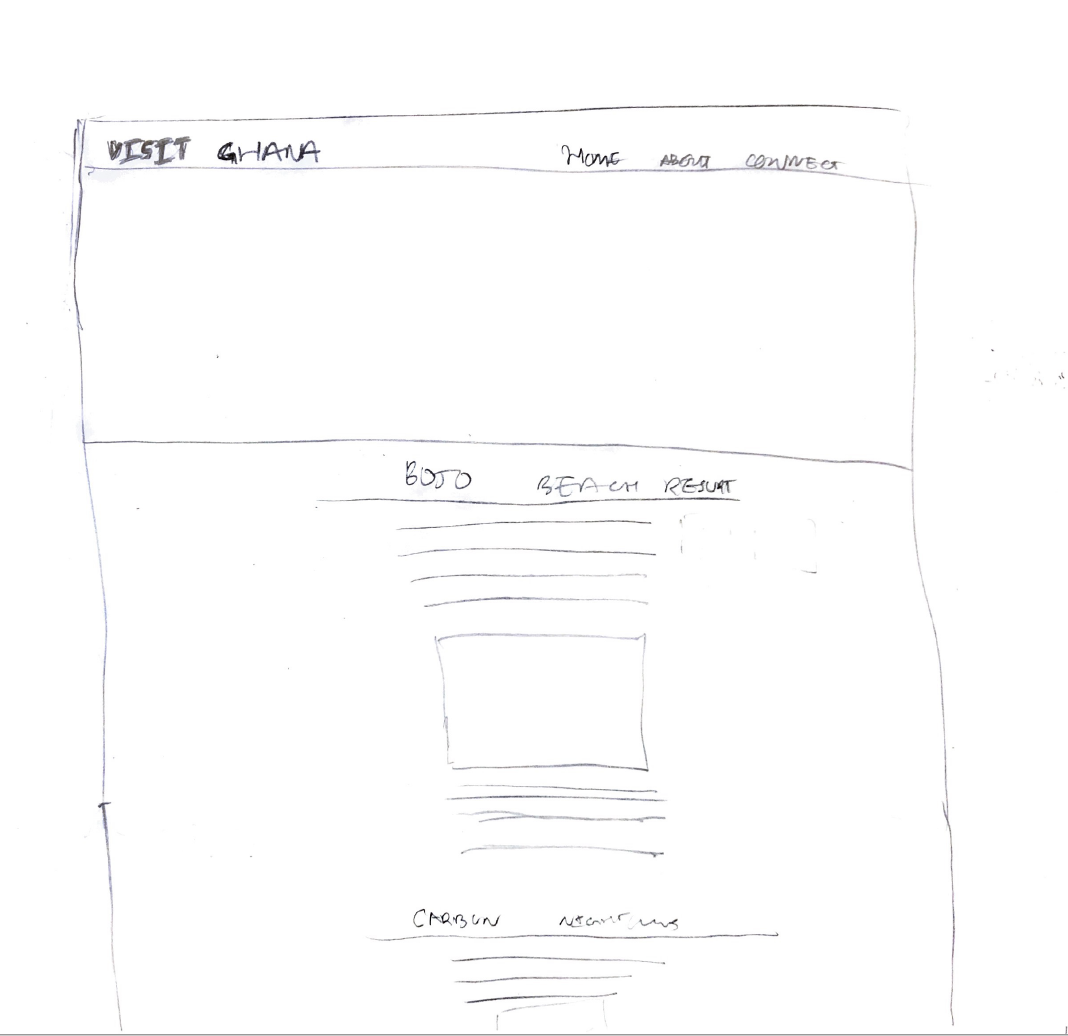 VISIT GHANA HOME ABOUT CONNECT
BOJO BEACH RESORT
CARBON